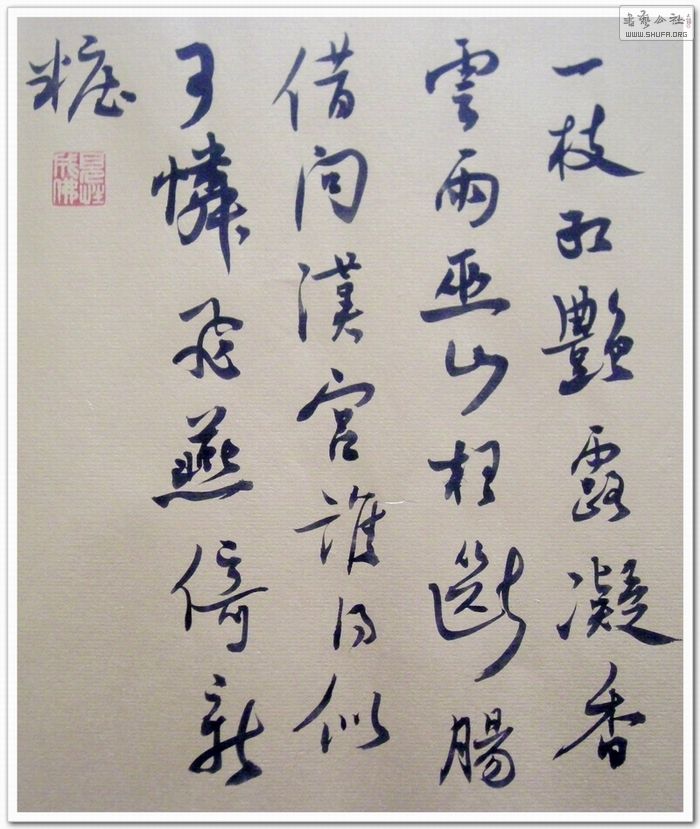 一枝紅艷露凝香
雲雨巫山枉斷腸
借問漢宮誰得似
可憐飛燕倚新
粧
見性成佛
書藝公社
WWW.SHUFA.ORG